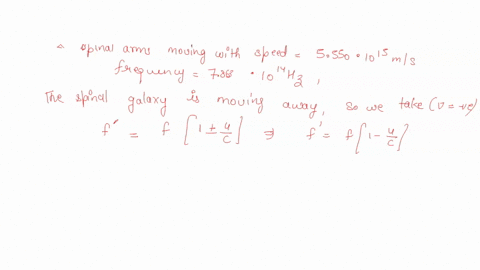 △ spinal arms moving with speed = 5.550 * 10^15 m/s
frequency = 7.308 * 10^14 Hz,
The spinal galaxy is moving away, so we take (v = -ve)
f' = f [1 ± u/c] ⇒ f' = f [1 - u/c]